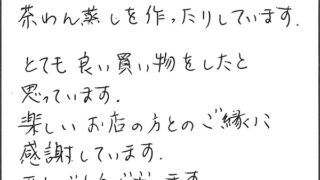 茶わん蒸しを作ったりしています.
とても良い買い物をしたと
思っています.
楽しいお店の方とのご縁に
感謝しています.